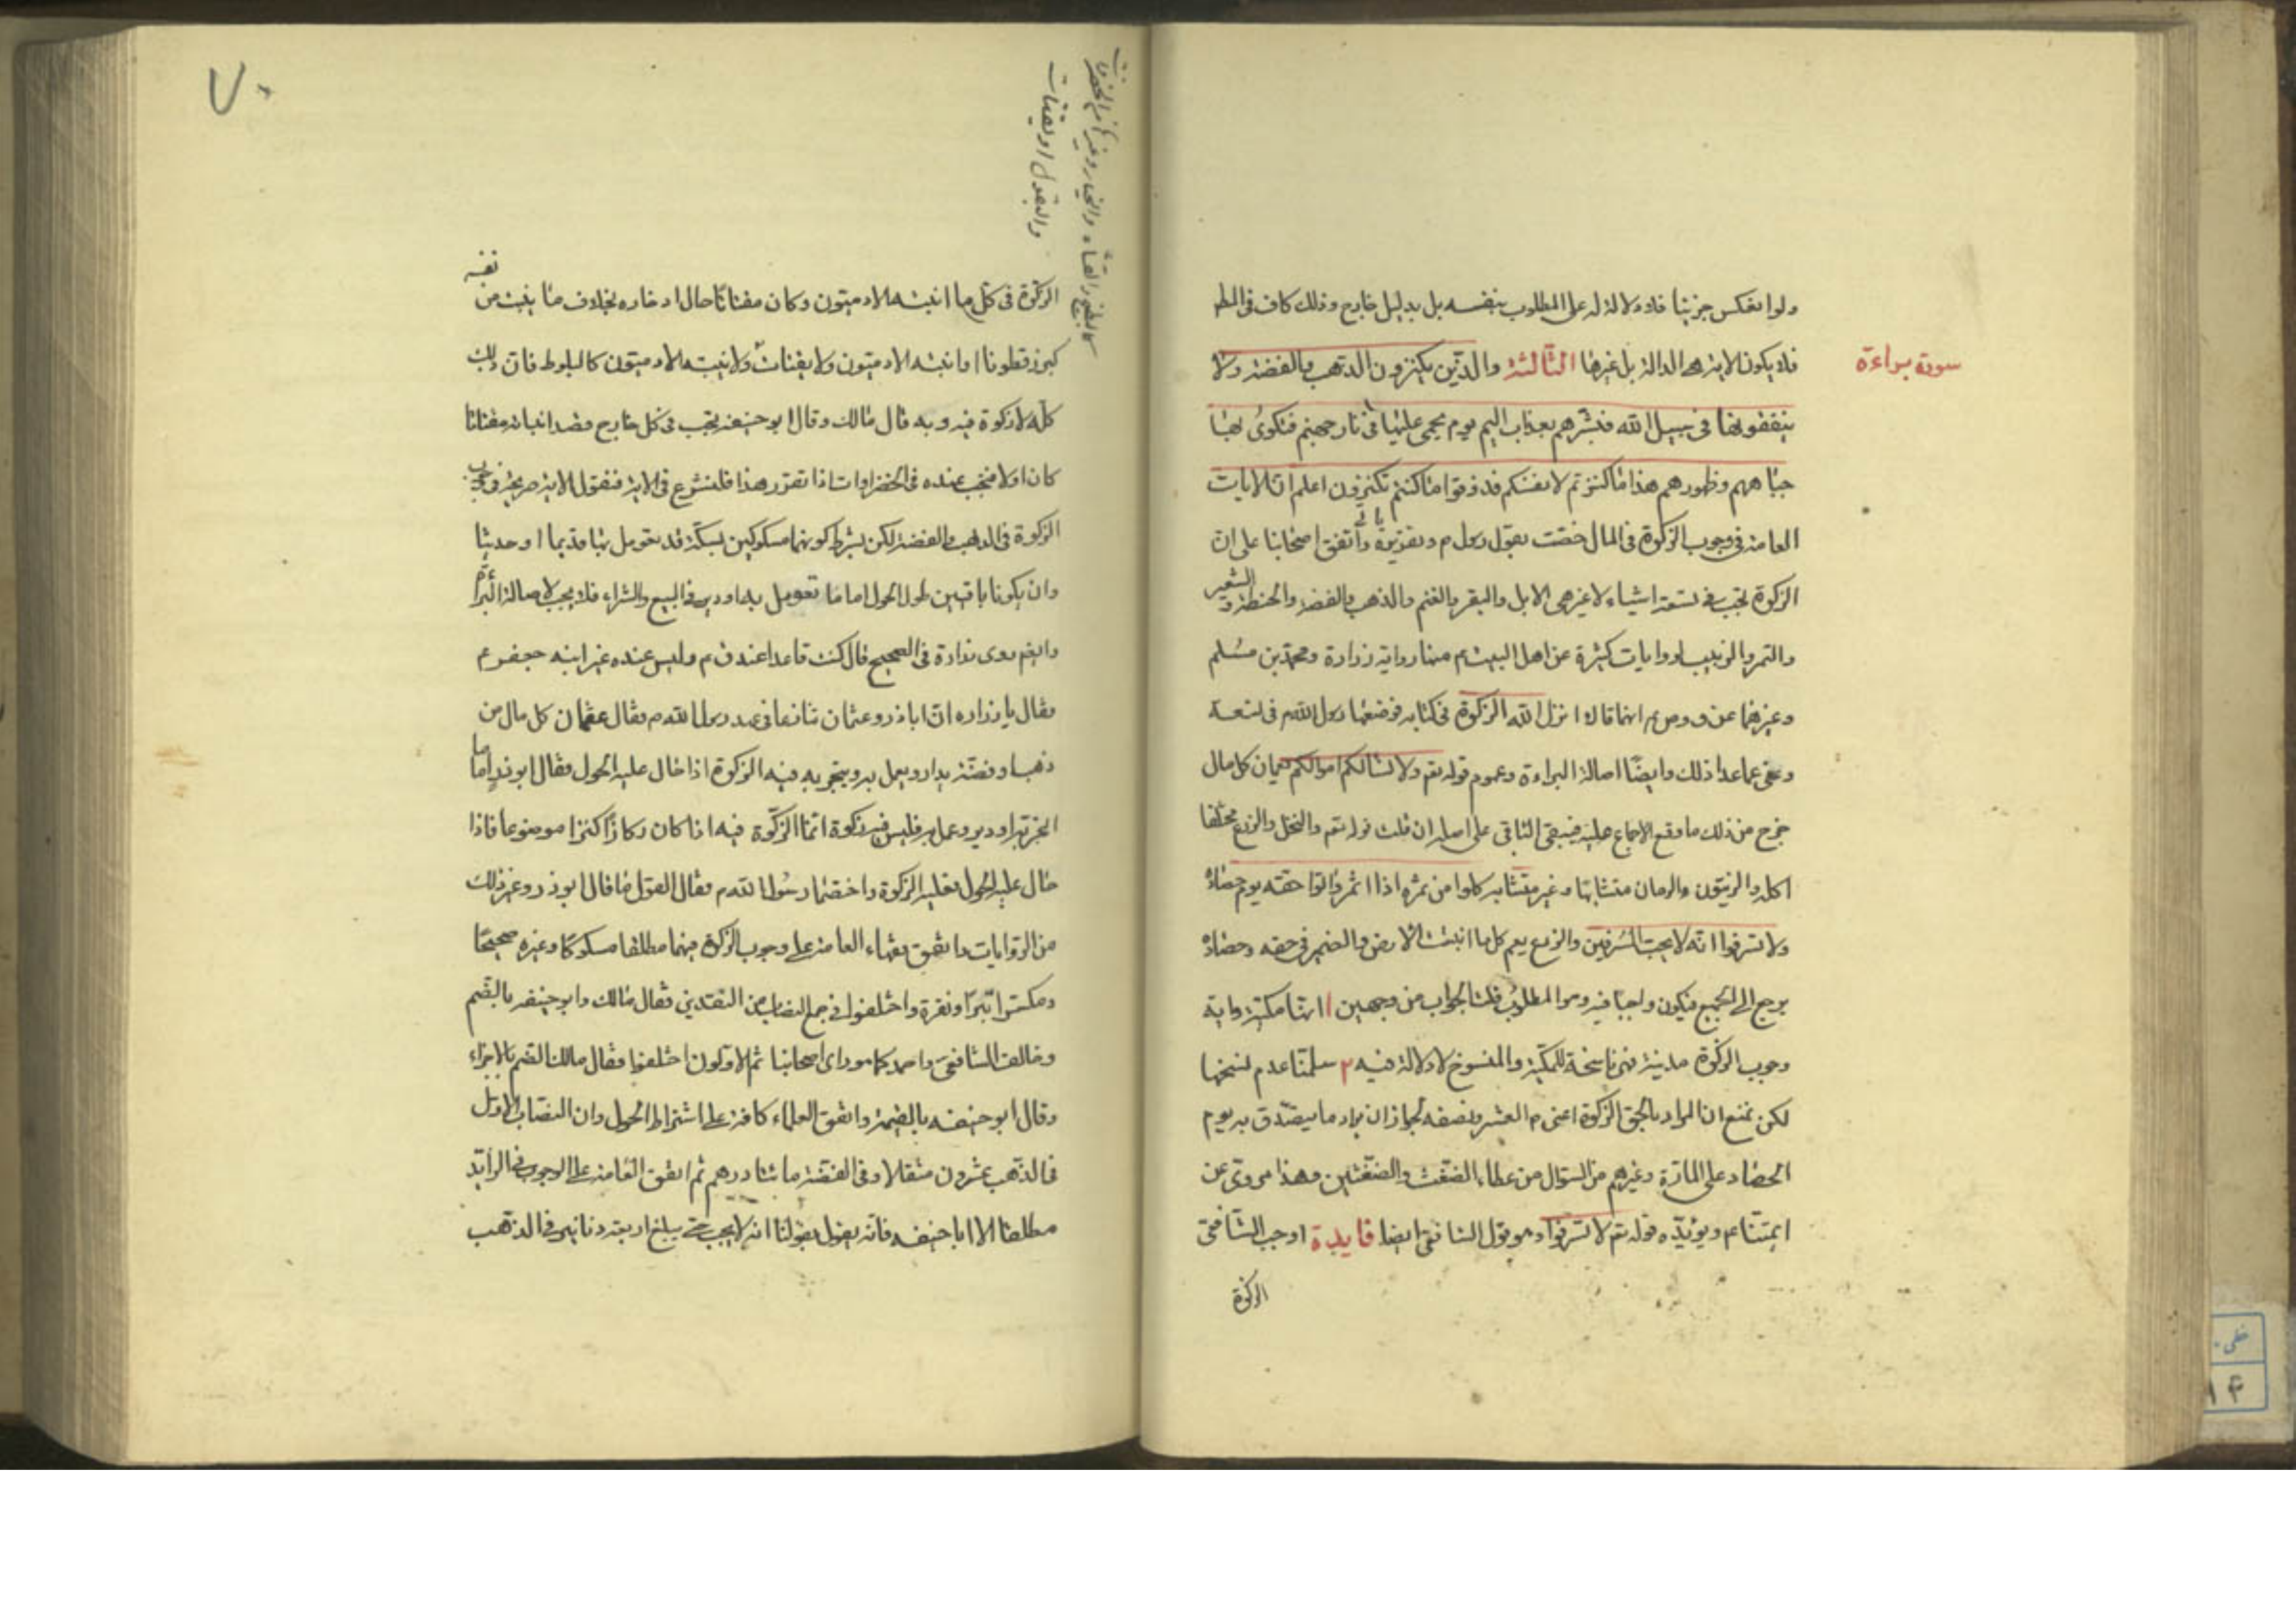 ولو انعكس جزئيا فلا دلالة له على المطلوب بنفسه بل بدليل خارج وذلك كاف في المط
سورة براءة
فلا يكون الاية هي الدالة بل غيرها الثالثة والذين يكنزون الذهب والفضة ولا
ينفقونها في سبيل الله فبشرهم بعذاب اليم يوم يحمى عليها في نار جهنم فتكوى بها
جباههم وظهورهم هذا ما كنزتم لانفسكم فذوقوا ما كنتم تكنزون اعلم ان الايات
العامة في وجوب الزكوة في المال خصت بقول رسول م واتفق اصحابنا على ان
الزكوة تجب في تسعة اشياء لا غير هي الابل والبقر والغنم والذهب والفضة والحنطة والشعير
والتمر والزبيب لروايات كثيرة عن اهل البيت م منها رواية زرارة ومحمد بن مسلم
وغيرهما عن انهما قالا انزل الله الزكوة في كتابه فوضعها رسول الله م في تسعة
وعفى عما عدا ذلك وايضا اصالة البراءة وعموم قوله تعم ولا يسالكم اموالكم كل مال
خرج من ذلك ما وقع الاجماع عليه فيبقى الباقي على اصله ان قلت قوله تعم والنخل والزرع مختلفا
اكله والزيتون والرمان متشابها وغير متشابه كلوا من ثمره اذا اثمر واتوا حقه يوم حصاده
ولا تسرفوا انه لا يحب المسرفين والزرع يعم كل ما انبتت الارض والضمير في حقه وحصاده
يرجع الى الجميع فيكون واجبا فيه وهو المطلوب قلت الجواب من وجهين ا انها مكية واية
وجوب الزكوة مدنية فهي ناسخة للمكية والمنسوخ لا دلالة فيه ٢ سلمنا عدم نسخها
لكن نمنع ان المراد بالحق الزكوة اعني م العشر ونصفه لجواز ان يراد ما يتصدق به يوم
الحصاد على المارة وغيرهم من السؤال من عطاء الضغث والضغثين وهذا مروي عن
ائمتنا عم ويؤيده قوله تعم لا تسرفوا وهو قول الشافعي ايضا فايدة اوجب الشافعي
الزكوة
٧٠
الزكوة في كل ما انبته الادميون وكان مقتاتا حال ادخاره بخلاف ما ينبت من نفسه
كبزر قطونا او انبته الادميون ولا يقتات ولا ينبته الادميون كالبلوط فان ذلك
كله لا زكوة فيه وبه قال مالك وقال ابو حنيفة تجب في كل خارج قصد انباته مقتاتا
كان او لا فتجب عنده في الخضراوات اذا تقرر هذا فلنشرع في الاية فنقول الاية صريحة في وجوب
الزكوة في الذهب والفضة لكن بشرط كونهما مسكوكين بسكة قد تعومل بها قديما او حديثا
وان يكونا باقيين طول الحول اما ما تعومل به او دير في البيع والشراء فلا يجب لاصالة البراءة
وايضا روى زرارة في الصحيح قال كنت قاعدا عند ق م وليس عنده غير ابنه جعفر م
فقال يا زرارة ان ابا ذر وعثمان تنازعا في عهد رسول الله م فقال عثمان كل مال من
ذهب او فضة يدار ويعمل به ويتجر به فيه الزكوة اذا حال عليه الحول فقال ابو ذر اما ما
اتجر به او دير وعمل به فليس فيه زكوة انما الزكوة فيه اذا كان ركازا كنزا موضوعا فاذا
حال عليه الحول فعليه الزكوة واختصما رسول الله م فقال القول ما قال ابو ذر وغير ذلك
من الروايات واتفق فقهاء العامة على وجوب الزكوة فيهما مطلقا مسكوكا وغيره صحيحا
ومكسرا تبرا ونقرة واختلفوا في جمع النصاب من النقدين فقال مالك وابو حنيفة بالضم
وخالف الشافعي واحمد كما هو راي اصحابنا ثم الاولون اختلفوا فقال مالك الضم بالاجزاء
وقال ابو حنيفه بالقيمة واتفق العلماء كافة على اشتراط الحول وان النصاب الاول
في الذهب عشرون مثقالا وفي الفضة مائتا درهم ثم اتفق العامة على الوجوب في الزايد
مطلقا الا ابا حنيفه فانه يقول بقولنا انه لا يجب حتى يبلغ اربعة دنانير في الذهب
كالبطيخ والقثاء والخيار وغيرها من الخضروات
والبقول او يقتات